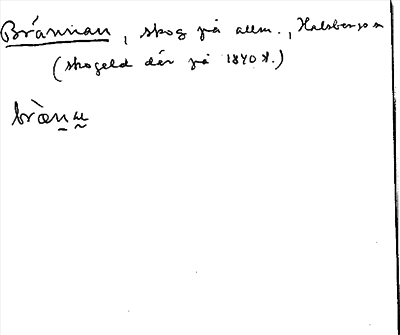 Brännan, skog på allm., Halsbergs sn
(skogeld där på 1840 t.)
bræ̀nₐ